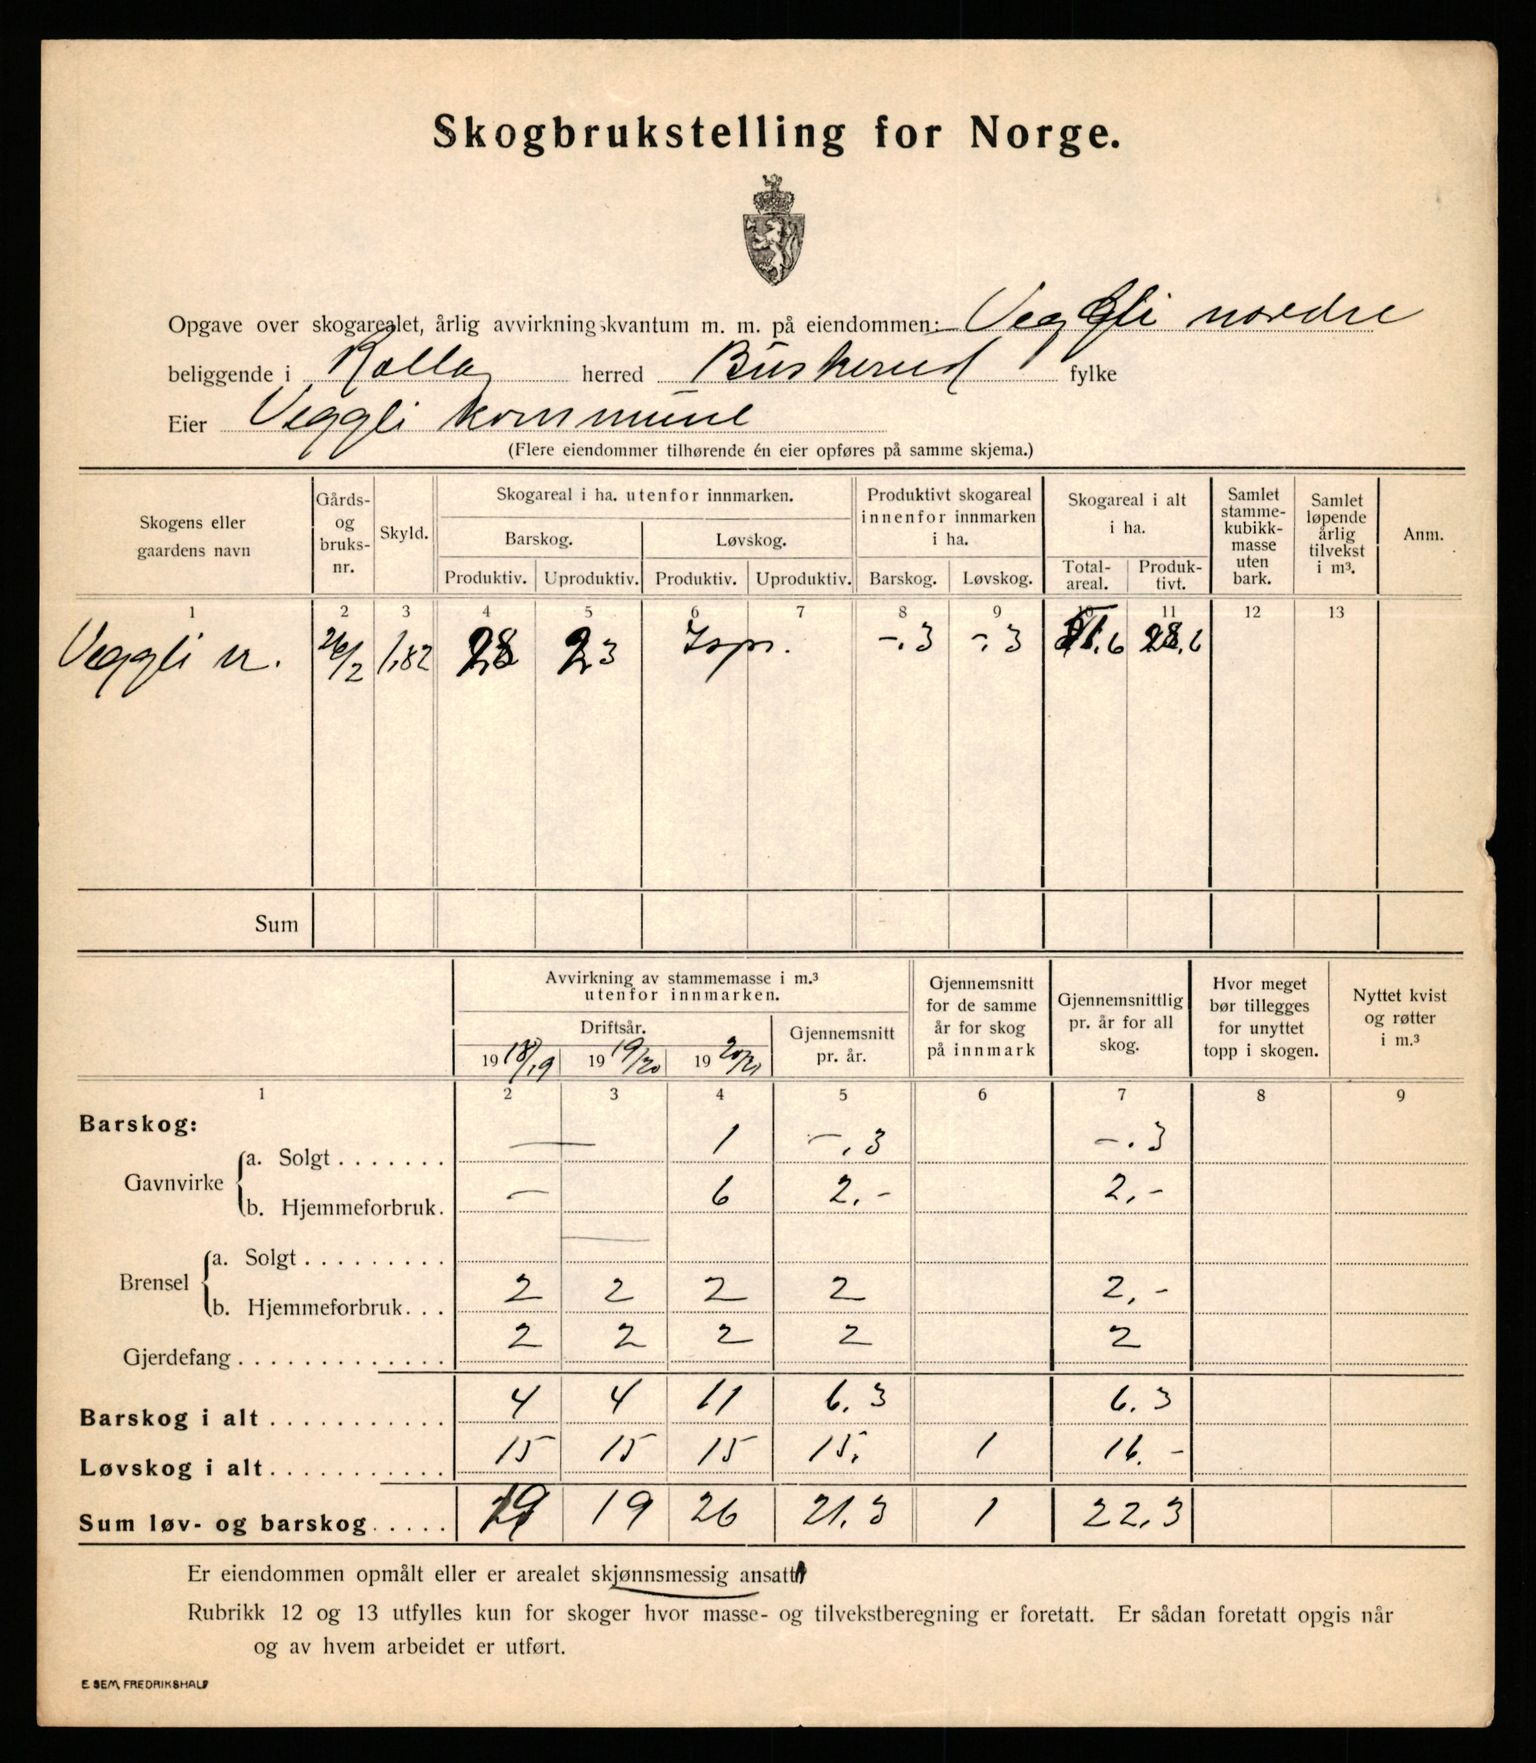 Skogbrukstelling for Norge.
Opgave over skogarealet, årlig avvirkningskvantum m. m. på eiendommen: Veggli nordre
beliggende i Rollag herred Buskerud fylke
Eier Veggli kommune
(Flere eiendommer tilhørende én eier opføres på samme skjema.)
Skogens eller gaardens navn
Gårds- og bruks- nr.
Skyld.
Skogareal i ha. utenfor innmarken.
Barskog. Løvskog.
Produktiv. Uproduktiv. Produktiv. Uproduktiv.
Produktivt skogareal innenfor innmarken i ha.
Barskog. Løvskog.
Skogareal i alt i ha.
Total- areal. Produk- tivt.
Samlet stamme- kubikk- masse uten bark.
Samlet løpende årlig tilvekst i m³.
Anm.
1 2 3 4 5 6 7 8 9 10 11 12 13
Veggli n. 26/2 1,82 28 23 Isp. -.3 -.3 51.6 28.6
Sum
Avvirkning av stammemasse i m.³ utenfor innmarken.
Driftsår.
19 18/19 19 19/20 19 20/21
Gjennemsnitt pr. år.
Gjennemsnitt for de samme år for skog på innmark
Gjennemsnittlig pr. år for all skog.
Hvor meget bør tillegges for unyttet topp i skogen.
Nyttet kvist og røtter i m.³
1 2 3 4 5 6 7 8 9
Barskog:
Gavnvirke
a. Solgt . . . . . . . — 1 -.3 -.3
b. Hjemmeforbruk. — 6 2.- 2,-
Brensel
a. Solgt . . . . . . . . . —
b. Hjemmeforbruk. . . 2 2 2 2 2,-
Gjerdefang . . . . . . . . . . . . . 2 2 2 2 2
Barskog i alt . . . . . . . . . . . 4 4 11 6.3 6.3
Løvskog i alt . . . . . . . . . . . 15 15 15 15. 1 16.-
Sum løv- og barskog . . . . . 19 19 26 21.3 1 22.3
Er eiendommen opmålt eller er arealet skjønnsmessig ansatt
Rubrikk 12 og 13 utfylles kun for skoger hvor masse- og tilvekstberegning er foretatt. Er sådan foretatt opgis når
og av hvem arbeidet er utført.
E. SEM, FREDRIKSHALD